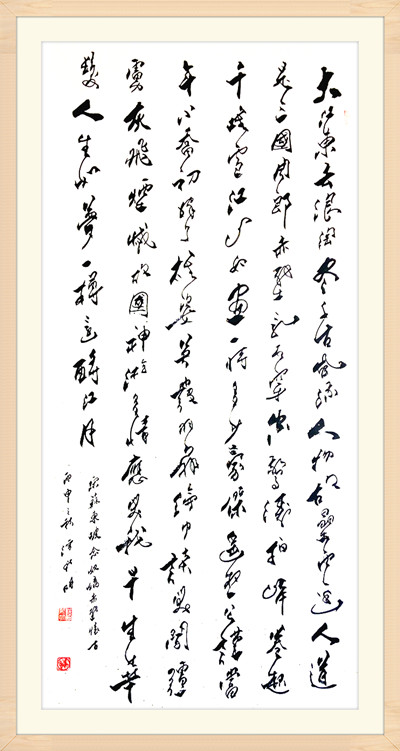 大江東去浪淘尽千古風流人物故壘西边人道
是三國周郎赤壁乱石穿空惊涛拍岸卷起
千堆雪江山如画一时多少豪傑遥想公瑾當
年小喬初嫁了雄姿英發羽扇綸巾談笑間强
虜灰飛煙滅故國神游多情應笑我早生華
髮人生如夢一樽還酹江月
蘇東坡念奴嬌赤壁懷古
丙申之秋